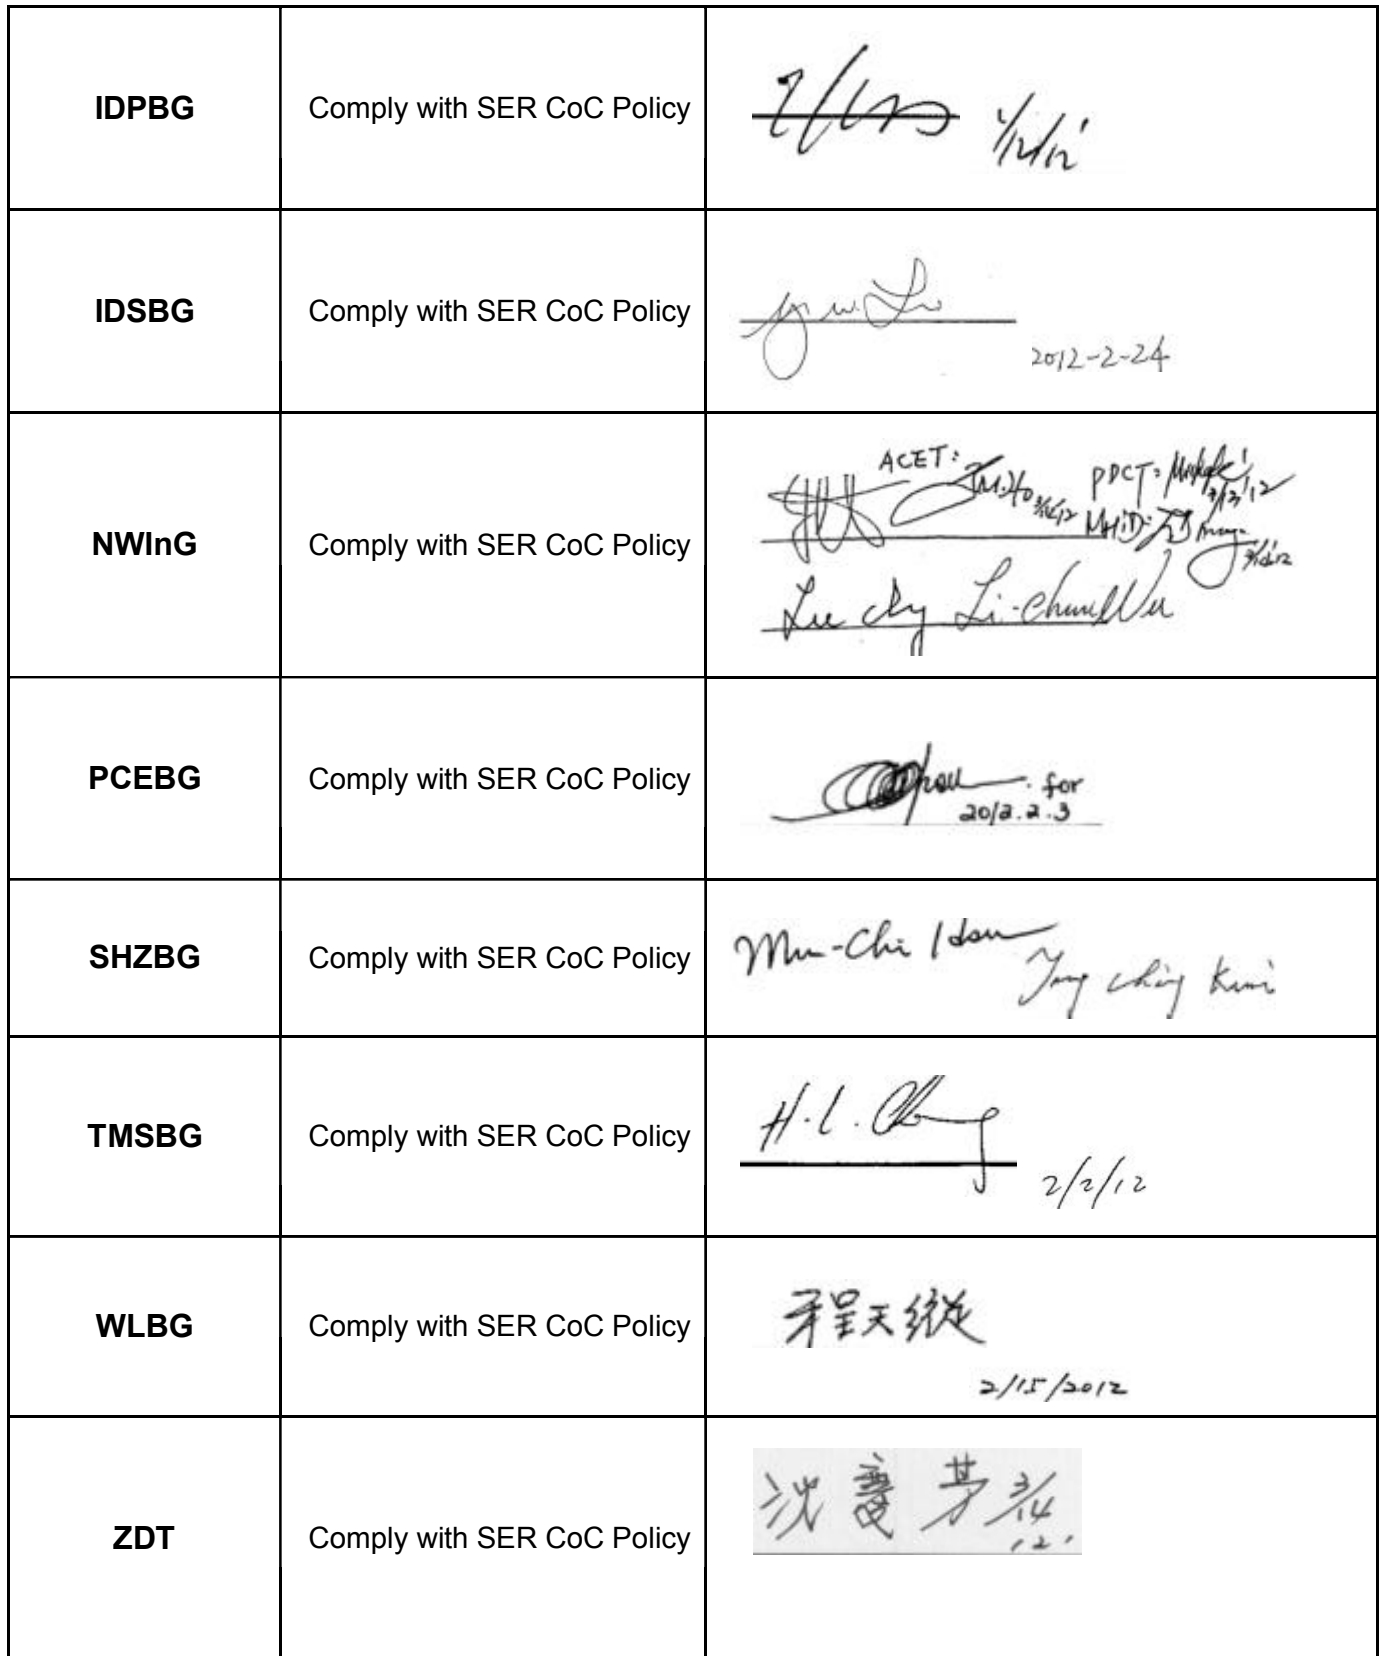 IDPBG Comply with SER CoC Policy 1/12/12
IDSBG Comply with SER CoC Policy
2012-2-24
ACET: PDCT:
NWInG Comply with SER CoC Policy
Li-Chun Wu
PCEBG Comply with SER CoC Policy for
2012.2.3
SHZBG Comply with SER CoC Policy Mu-Chi Hsu
TMSBG Comply with SER CoC Policy H.L.
2/2/12
WLBG Comply with SER CoC Policy 程天縱
2/15/2012
ZDT Comply with SER CoC Policy 沈慶芳 3/14
12'